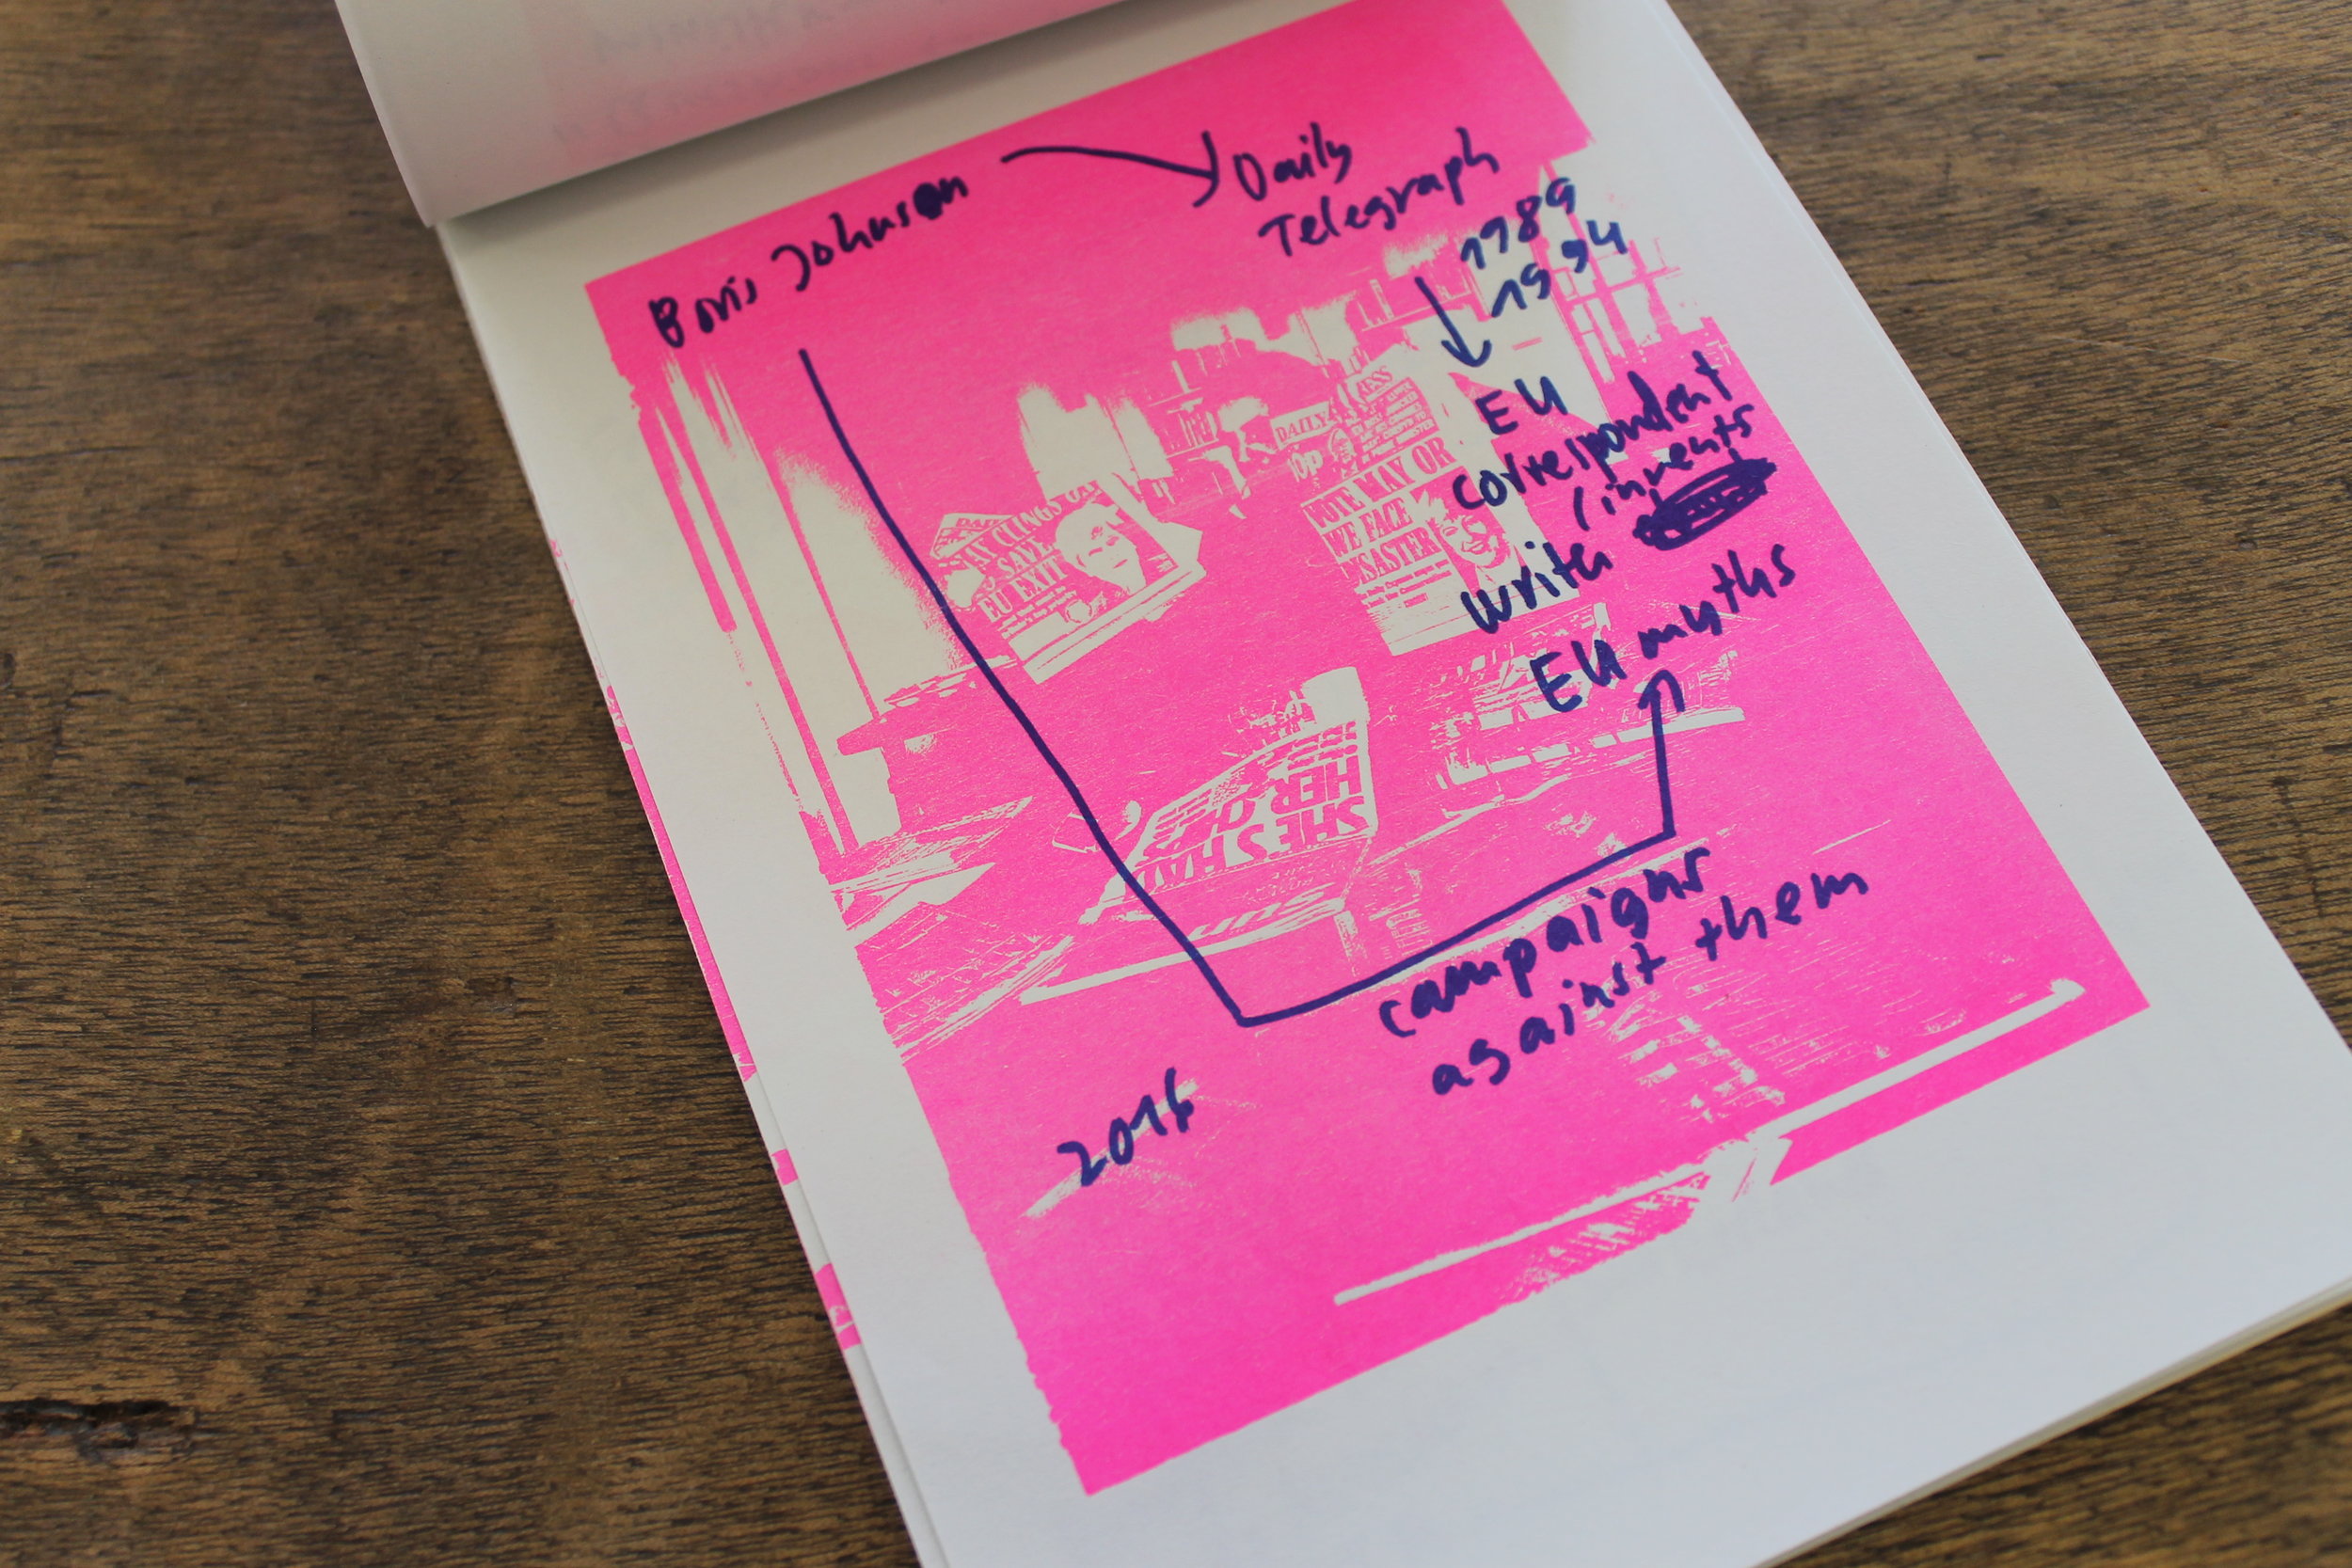 Boris Johnson
Daily
Telegraph
1989
1994
EU
correspondent
(invents
writes
EU myths
campaigns
against them
2016
DAILY
CLINGS ON
SAVE
EU EXIT
DAILY
10p
VOTE MAY OR
WE FACE
DISASTER
SHE'S HAD
HER
SUN